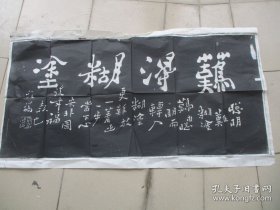 難得糊塗
聰明
難糊塗
難由聰
明而
轉入
糊塗
更難放
一著退
一步
當下心
安非圖
後來福
報也
孔夫子旧书网